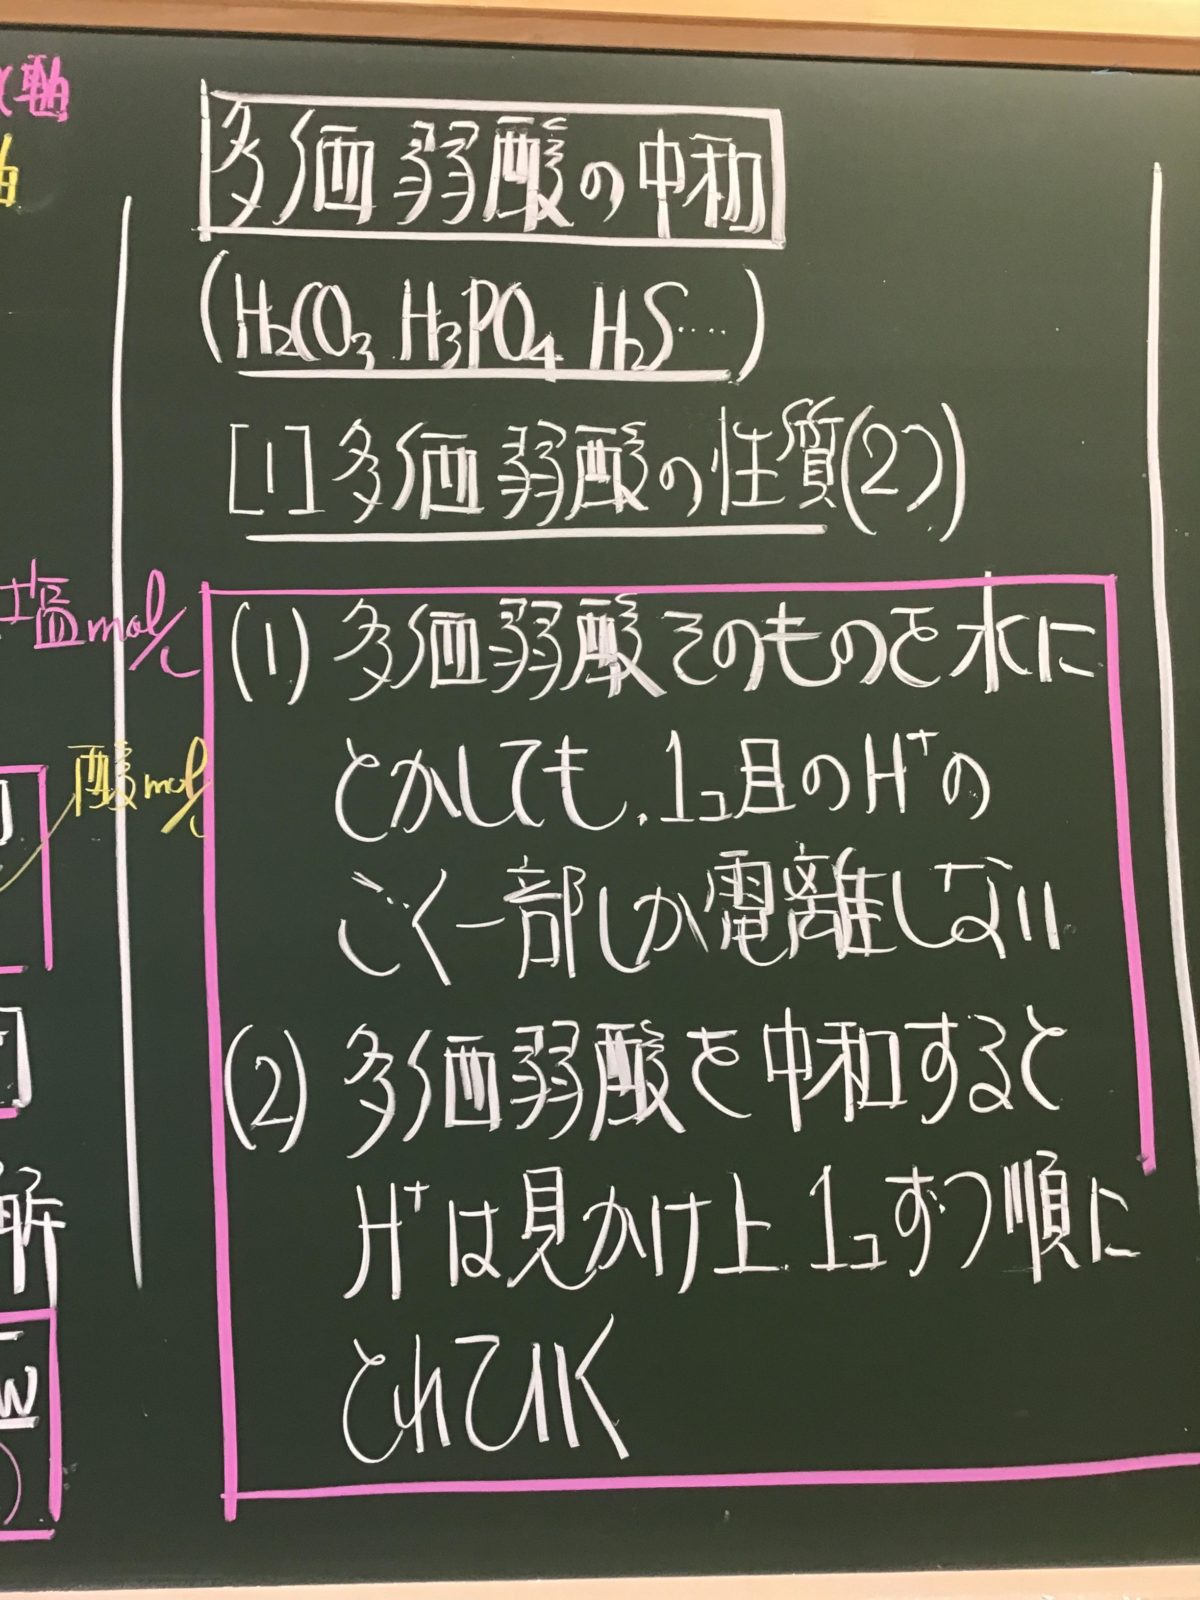 多価弱酸の中和
(H₂CO₃ H₃PO₄ H₂S‥‥)
[1]多価弱酸の性質(2つ)
(1) 多価弱酸そのものを水に
とかしても、1コ目のH⁺の
ごく一部しか電離しない
(2) 多価弱酸を中和すると
H⁺は見かけ上、1コずつ順に
とれていく
塩mol/L
酸mol/L